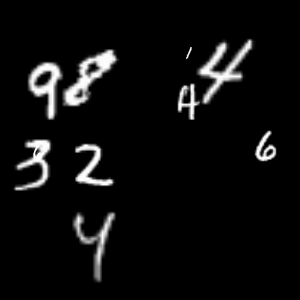 98 1 4
4
32 6
4